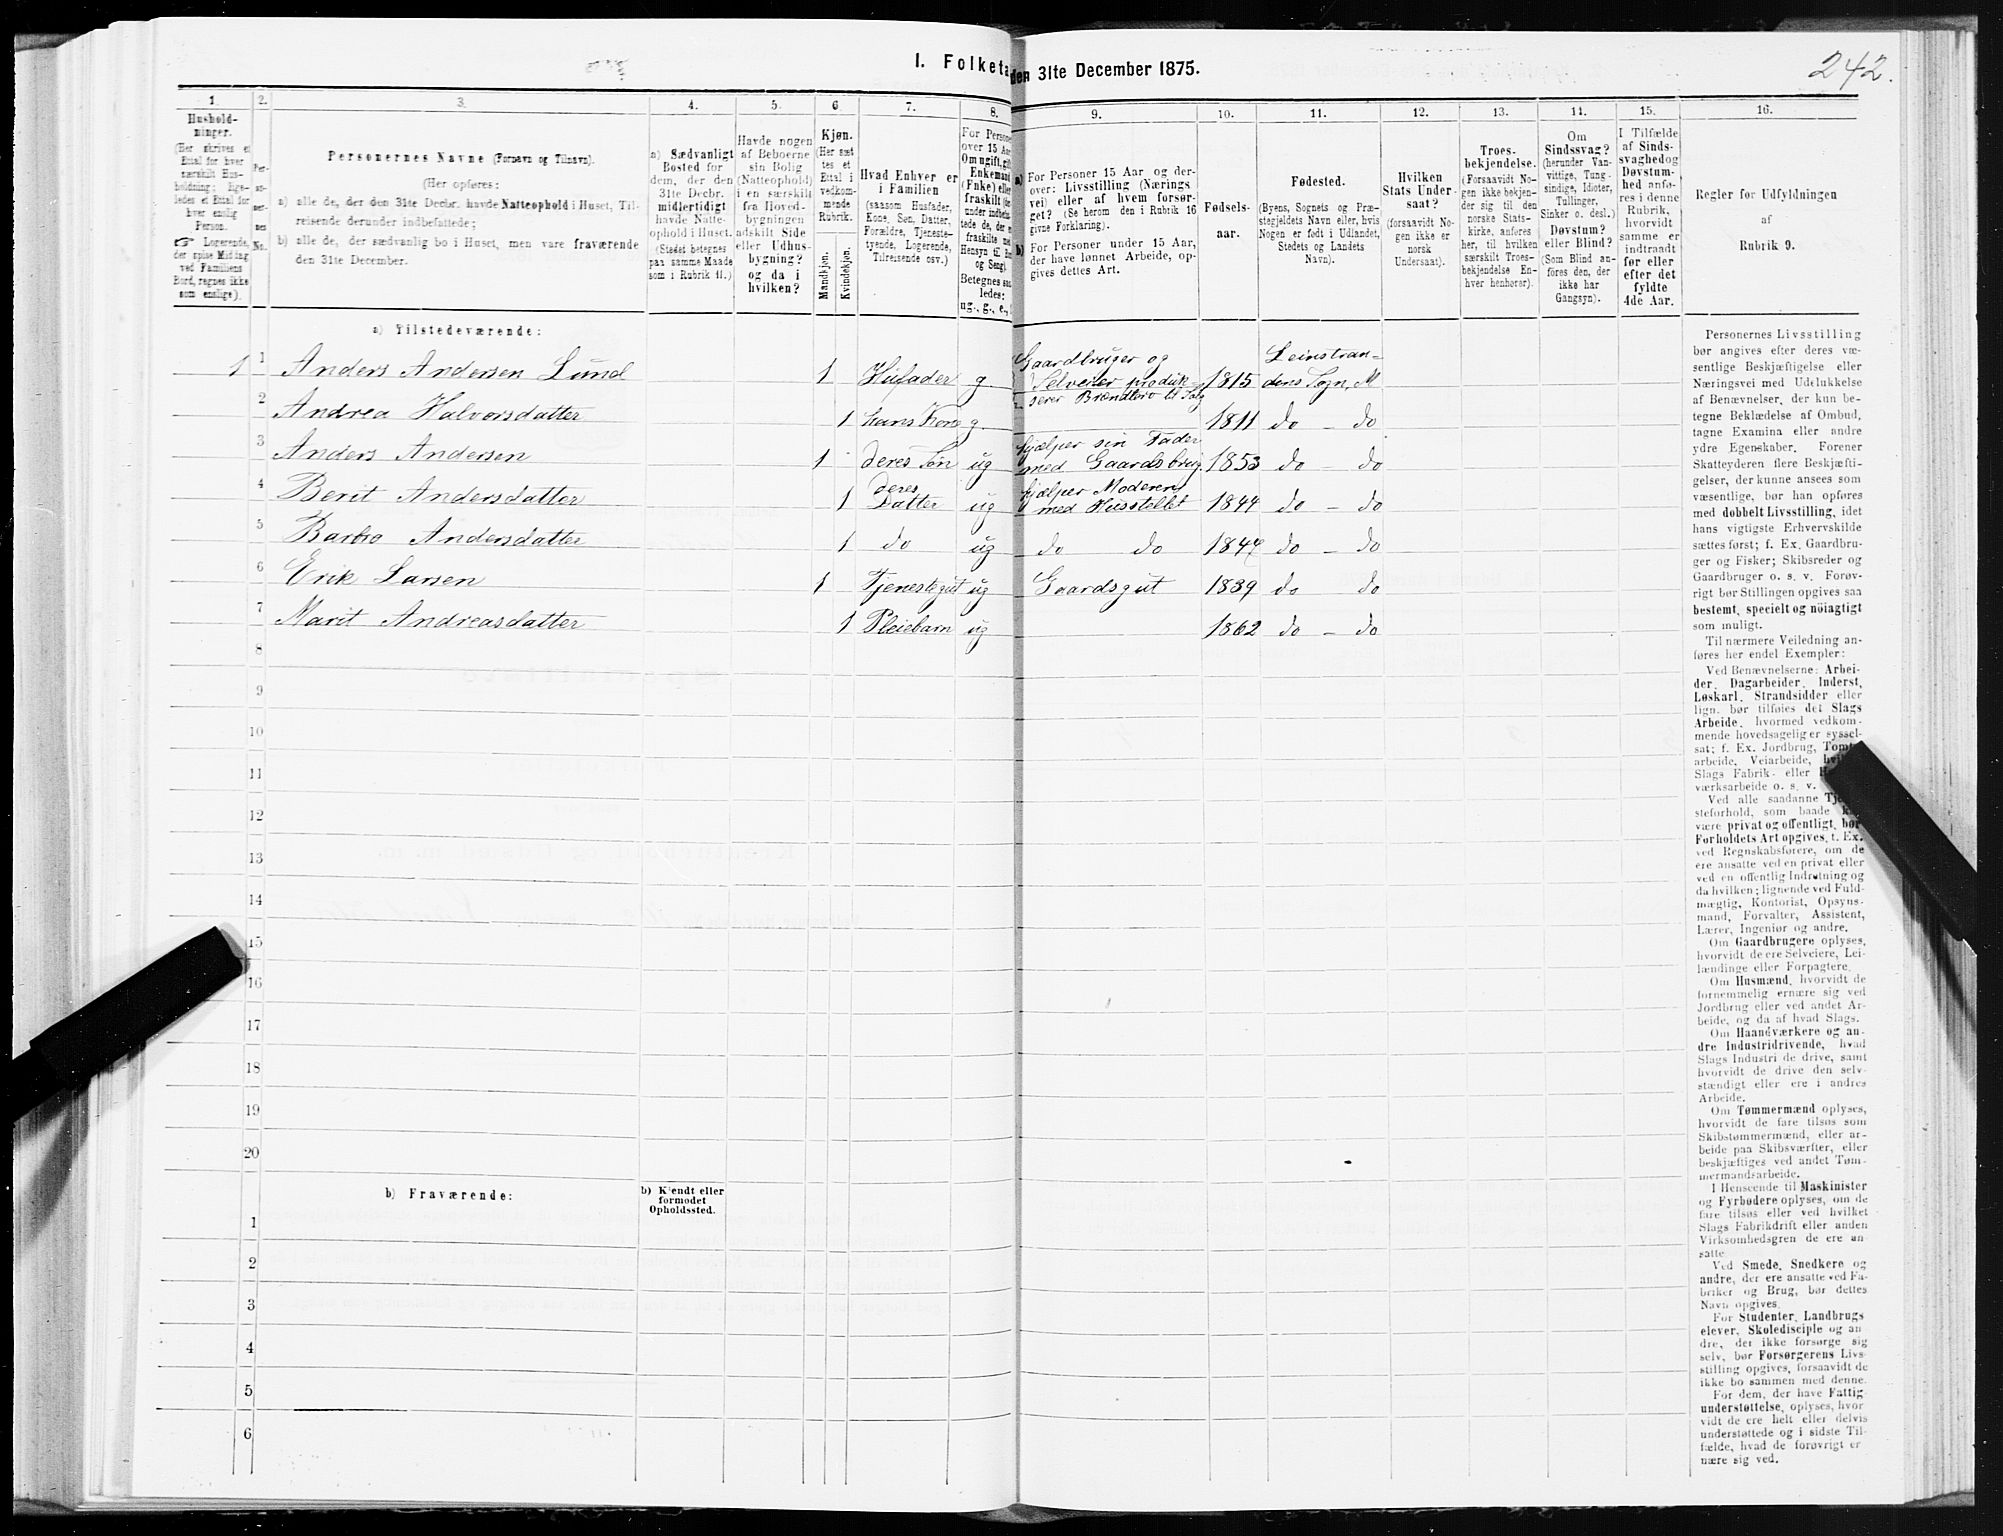 242.
I. Folketa
den 31te December 1875.
1. 2. 3. 4. 5. 6. 7. 8. 9. 10. 11. 12. 13. 14. 15. 16.
Hushold-
ninger.
(Her skrives et
Ettal for hver
særskilt Hus-
holdning; lige-
ledes et Ettal for
hver enslig
Person.
☞ Logerende,
der spise Middag
ved Familiens
Bord, regnes ikke
som enslige).
Per-
so-
ner-
nes
No.
Personernes Navne (Fornavn og Tilnavn).
(Her opføres:
a) alle de, der den 31te Decbr. havde Natteophold i Huset, Til-
reisende derunder indbefattede;
b) alle de, der sædvanlig bo i Huset, men vare fraværende
den 31te December.
a) Sædvanligt
Bosted for
dem, der den
31te Decbr.
midlertidigt
havde Natte-
ophold i Huset.
(Stedet betegnes
paa samme Maade
som i Rubrik 11.)
Havde nogen
af Beboerne
sin Bolig
(Natteophold)
i en særskilt
fra Hoved-
bygningen
adskilt Side
eller Udhus-
bygning?
og da i
hvilken?
Kjøn.
(Her sæt
tes et
Ettal i
vedkom-
mende
Rubrik.
Mandkjøn.
Kvindekjøn.
Hvad Enhver er
i Familien
(saasom Husfader,
Kone, Søn, Datter,
Forældre, Tjeneste-
tyende, Logerende,
Tilreisende osv.)
For Persone
over 15 Aa
Om ugift, gift
Enkemand
(Enke) eller
fraskilt
under indbefat
tede de, der
fraskilte
Hensyn til Bo
og Seng).
Betegnes saa
ledes:
ug., g., e.,
a) For Personer 15 Aar og der-
over: Livsstilling (Nærings
vei) eller af hvem forsør-
get? (Se herom den i Rubrik 16
givne Forklaring).
b) For Personer under 15 Aar,
der have lønnet Arbeide, op-
gives dettes Art.
Fødsels-
aar.
Fødested.
(Byens, Sognets og Præ-
stegjeldets Navn eller, hvis
Nogen er født i Udlandet,
Stedets og Landets
Navn).
Hvilken
Stats Under-
saat?
(forsaavidt No-
gen ikke er
norsk
Undersaat).
Troes-
bekjendelse.
(Forsaavidt No-
gen ikke bekjen-
der sig til den
norske Stats-
kirke, anføres
her, til hvilken
særskilt Troes-
bekjendelse En-
hver henhører).
Om
Sindssvag?
(herunder Van-
vittige, Tung-
sindige, Idioter,
Tullinger,
Sinker o. desl.)
Døvstum?
eller Blind?
(Som Blind an-
føres den, der
ikke har
Gangsyn).
I Tilfælde
af Sinds-
svaghedog
Døvstum-
hed anfø-
res i denne
Rubrik,
hvorvidt
samme er
indtraadt
før eller
efter det
fyldte
4de Aar.
Regler for Udfyldningen
af
Rubrik 9.
a) Tilstedeværende:
1 1 Anders Andersen Lund 1 Husfader g. Gaardbruger og Selveier produk- 1815 Leinstran-
serer Brændtorv til Salg dens Sogn, M
2 Andrea Halvorsdatter 1 hans Kone g. 1811 do – do
3 Anders Andersen 1 deres Søn ug hjælper sin Fader
med Gaardsbrug. 1853 do – do
4 Berit Andersdatter 1 deres
Datter ug hjælper Moderen
med Husstellet 1844 do – do
5 Barbro Andersdatter 1 do ug do do 1847 do – do
6 Erik Larsen 1 Tjenestegut ug Gaardsgut 1839 do do
7 Marit Andreasdatter 1 Pleiebarn ug 1862 do – do
8
9
10
11
12
13
14
15
16
17
18
19
20
b) Fraværende:
b) Kjendt eller
formodet
Opholdssted.
1
2
3
4
5
6
Personernes Livsstilling
bør angives efter deres væ-
sentlige Beskjæftigelse eller
Næringsvei med Udelukkelse
af Benævnelser, der kun be-
tegne Beklædelse af Ombud,
tagne Examina eller andre
ydre Egenskaber. Forener
Skatteyderen flere Beskjæfti-
gelser, der kunne ansees som
væsentlige, bør han opføres
med dobbelt Livsstilling, idet
hans vigtigste Erhvervskilde
sættes først; f. Ex. Gaardbru-
ger og Fisker; Skibsreder og
Gaardbruger o. s. v. Forøv-
rigt bør Stillingen opgives saa
bestemt, specielt og nöiagtigt
som muligt.
Til nærmere Veiledning an-
føres her endel Exempler:
Ved Benævnelserne: Arbei-
der, Dagarbeider, Inderst,
Løskarl, Strandsidder eller
lign. bør tilføies det Slags
Arbeide, hvormed vedkom-
mende hovedsagelig er syssel-
sat; f. Ex. Jordbrug, Tomt
arbeide, Veiarbeide,
Slags Fabrik- eller
værksarbeide o. s. v.
Ved alle saadanne
steforhold, som baade
være privat og offentligt, bør
Forholdets Art opgives, t. Ex.
ved Regnskabsførere, om de
ere ansatte ved en privat eller
ved en offentlig Indretning og
da hvilken; lignende ved Fuld-
mægtig, Kontorist, Opsyns-
mand, Forvalter, Assistent,
Lærer, Ingeniør og andre.
Om Gaardbrugere oplyses,
hvorvidt de ere Selveiere, Lei-
lændinge eller Forpagtere.
Om Husmænd, hvorvidt de
fornemmelig ernære sig ved
Jordbrug eller ved andet Ar-
beide, og da af hvad Slags.
Om Haandværkere og an-
dre Industridrivende, hvad
Slags Industri de drive, samt
hvorvidt de drive den selv-
stændigt eller ere i andres
Arbeide.
Om Tømmermænd oplyses,
hvorvidt de fare tilsøs som
Skibstømmermænd, eller ar-
beide paa Skibsværfter, eller
beskjæftiges ved andet Tøm-
mermandsarbeide.
I Henseende til Maskinister
og Fyrbødere oplyses, om de
fare tilsøs eller ved hvilket
Slags Fabrikdrift eller anden
Virksomhedsgren de ere an-
satte.
Ved Smede, Snedkere og
andre, der ere ansatte ved Fa-
briker og Brug, bør dettes
Navn opgives.
For Studenter, Landbrugs
elever, Skoledisciple og an
dre, der ikke forsørge sig
selv, bør Forsørgerens Livs-
stilling opgives, forsaavidt de
ikke bo sammen med denne.
For dem, der have Fattig
understøttelse, oplyses, hvor
vidt de ere helt eller delvis
understøttede og i sidste Til-
fælde, hvad de forøvrigt er
nære sig ved.